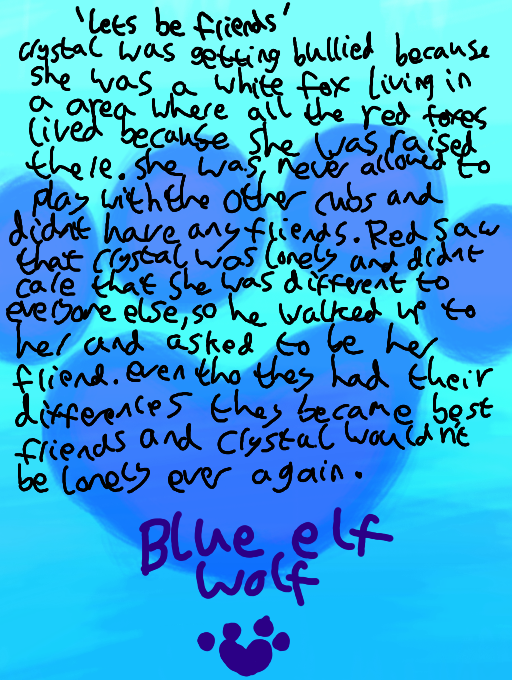 'Lets be friends'
Crystal was getting bullied because
she was a white fox living in
a area where all the red foxes
lived because she was raised
there. She was never allowed to
play with the other cubs and
didnt have any friends. Red saw
that crystal was lonely and didnt
care that she was different to
everyone else, so he walked up to
her and asked to be her
friend. even tho they had their
differences they became best
friends and Crystal wouldn't
be lonely ever again.
Blue elf
wolf